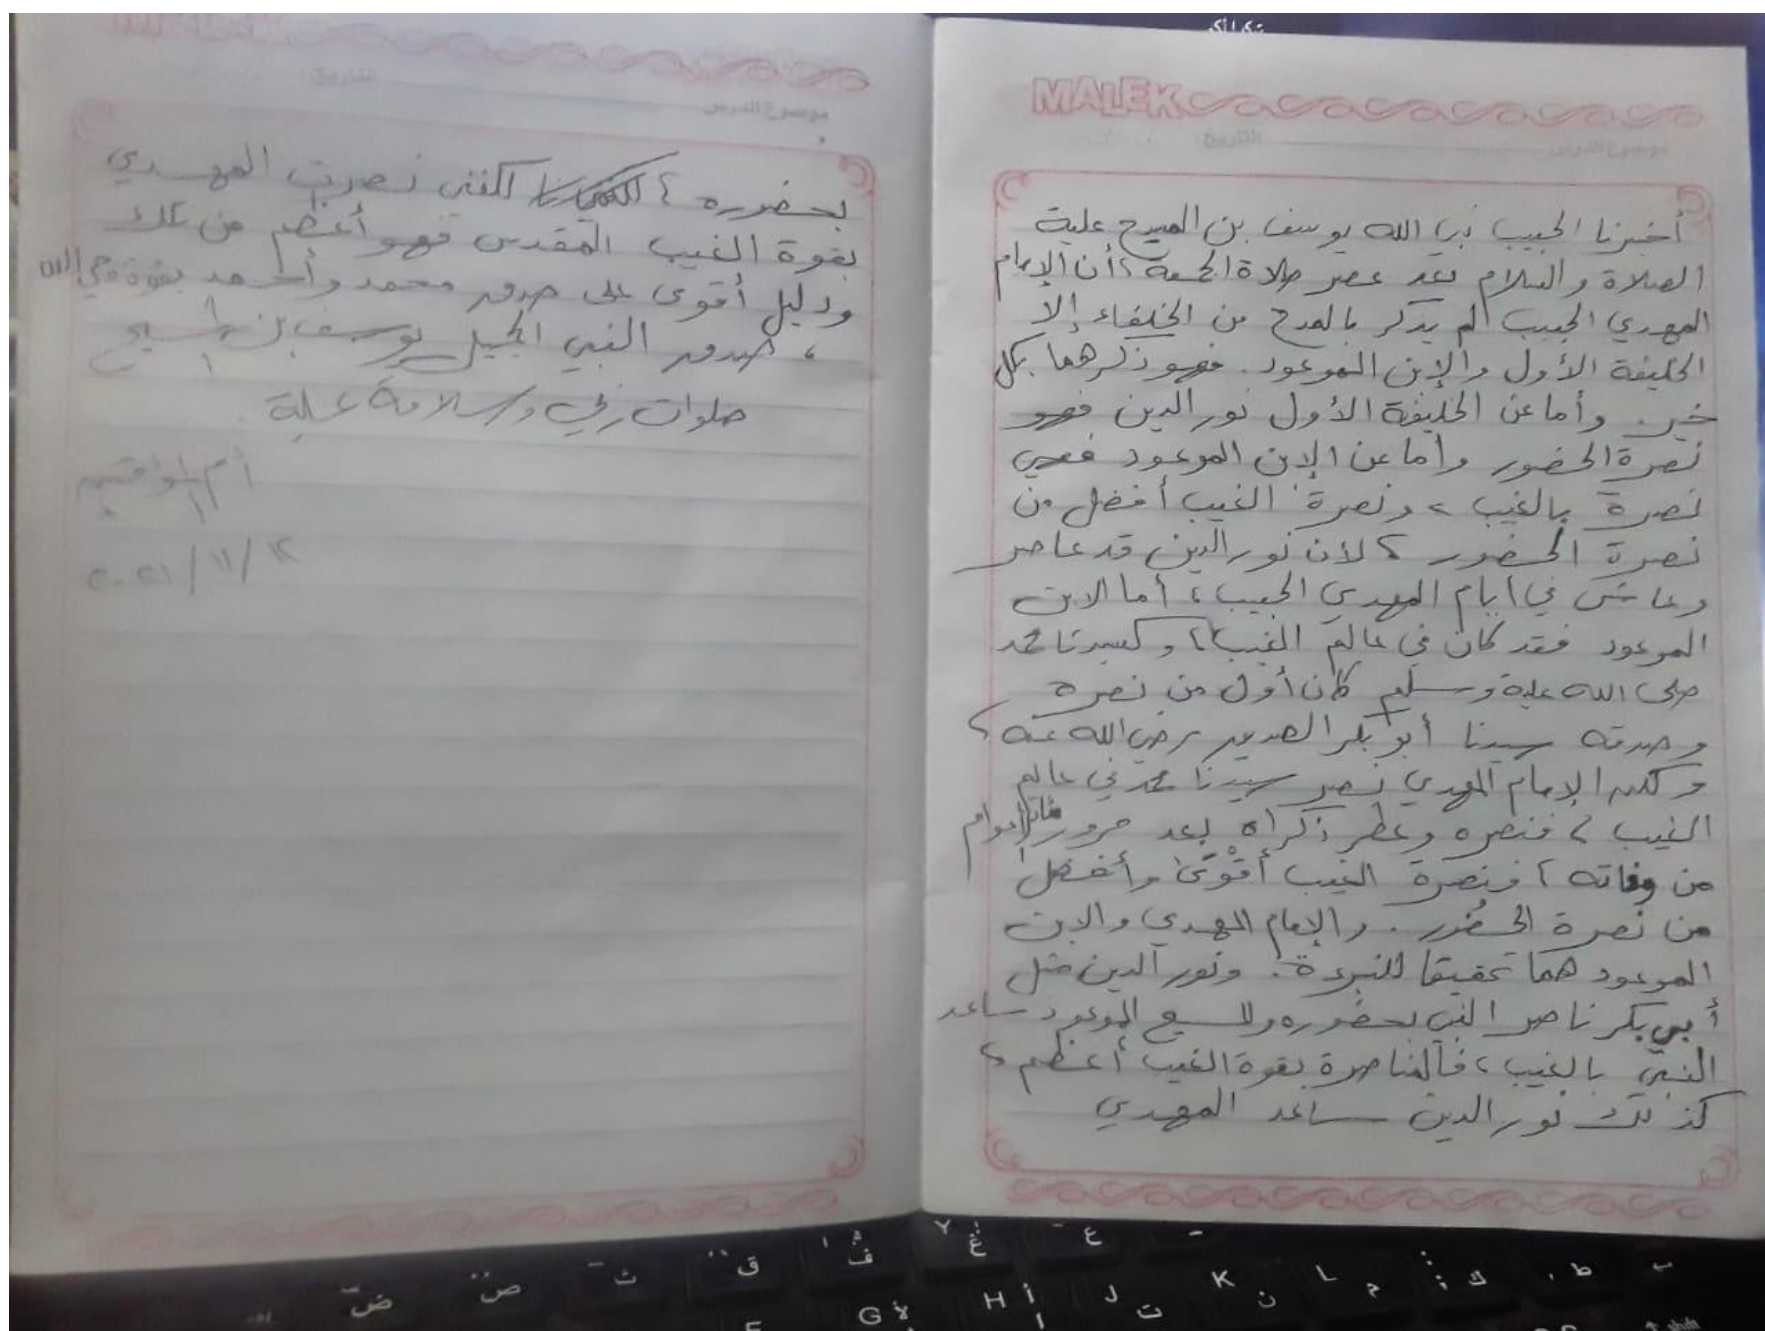 MALEK
التاريخ
موضوع الدرس
أخبرنا الحبيب نبي الله يوسف بن المسيح علية
الصلاة والسلام بعد عصر صلاة الجمعة ، أن الإمام
المهدي الحبيب لم يذكر بالمدح من الخلفاء إلا
الخليفة الأول والإبن الموعود . فهو ذكرهما بكل
خير . وأما عن الخليفة الأول نور الدين فهو
نصرة الحضور وأما عن الإبن الموعود فهي
نصرة بالغيب ، ونصرة الغيب أفضل من
نصرة الحضور ، لان نور الدين قد عاصر
وعاش في أيام المهدي الحبيب ، أما الابن
الموعود فقد كان في عالم الغيب ، وكسيدنا محمد
صلى الله علية وسلم كان أول من نصره
وصدقه سيدنا أبو بكر الصديق رضي الله عنه ،
ولكن الإمام المهدي نصر سيدنا محمد في عالم
الغيب ، فنصره وعطر ذكراه بعد مرور أعوام
من وفاته ، ونصرة الغيب أقوى وأفضل
من نصرة الحضُور . والإمام المهدي والابن
الموعود هما تحقيقا للنبوءة . ونور الدين مثل
أبي بكر ناصر النبي بحضوره والمسيح الموعود ساعد
النبي بالغيب ، فالمناصرة بقوة الغيب أعظم ،
كذلك نور الدين ساعد المهدي
بحضوره ، لكنني نصرت المهدي
بقوة الغيب المقدس فهو أعظم من تلك
ودليل أقوى على صدق محمد وأحمد بقوة وحي الله
، صدق النبي الجميل يوسف بن المسيح
صلوات ربي وسلامة علية .
أم المؤمنين
٢٠٢١/١١/١٢
ض ص ث ق ف غ ع
G H J K L
ط ك م ن ت
shift